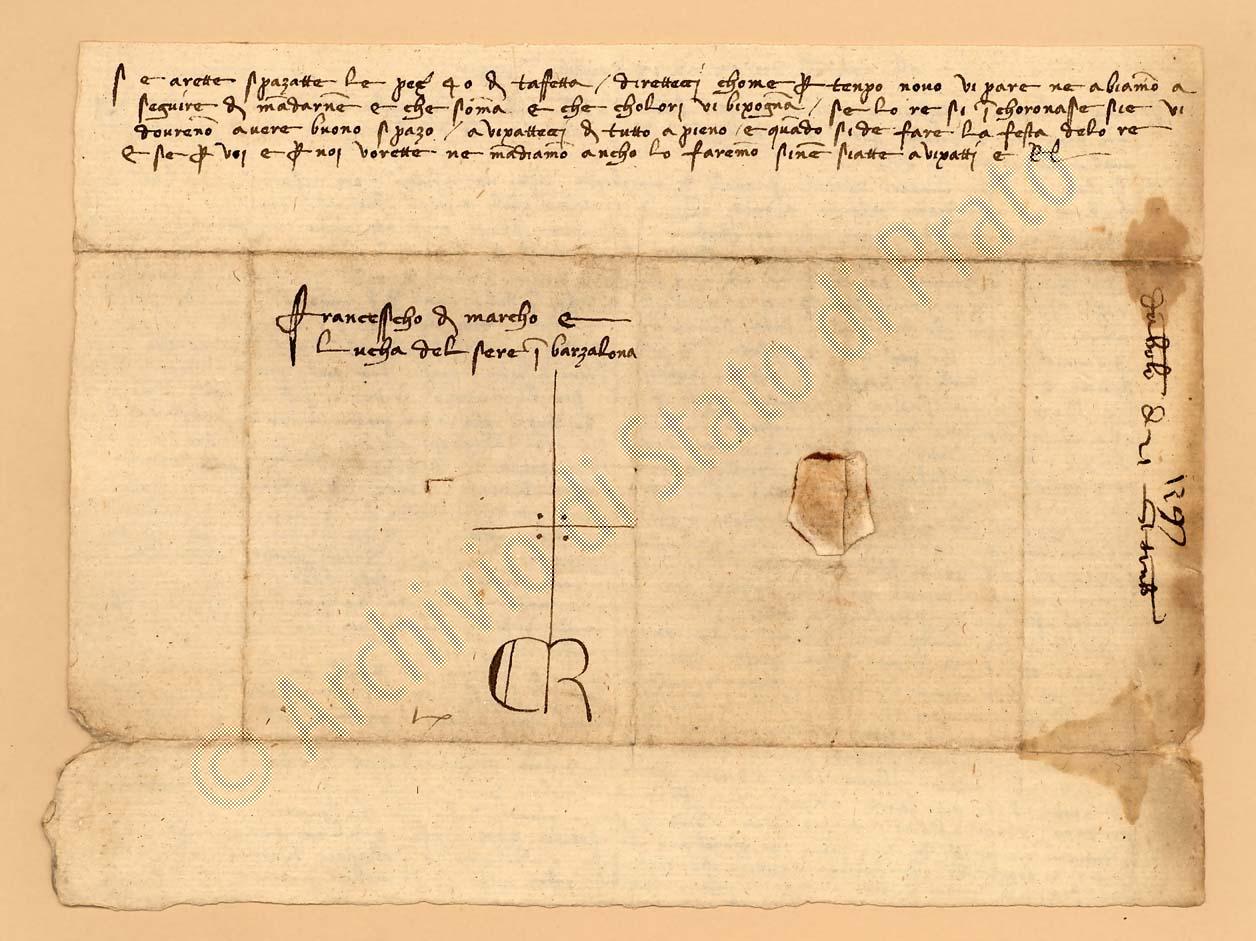 S e arette spazatte le peç 40 d taffetta / diretteci chome p tenpo novo vi pare ne abiamo a
seguire d mādarne e che soma e che cholori vi bixognā / se lo re si īchoronasse sie vi
dovrenō avere buono spazo / avixatteci d tutto a pieno / e quādo si de fare la festa delo re
E se p voi e p noi vorette ne mādiamo ancho lo faremo sinē siatte avixatti e
Francesscho d marcho e
Lucha del sere ī barzalona
CR
1397
© Archivio di Stato di Prato